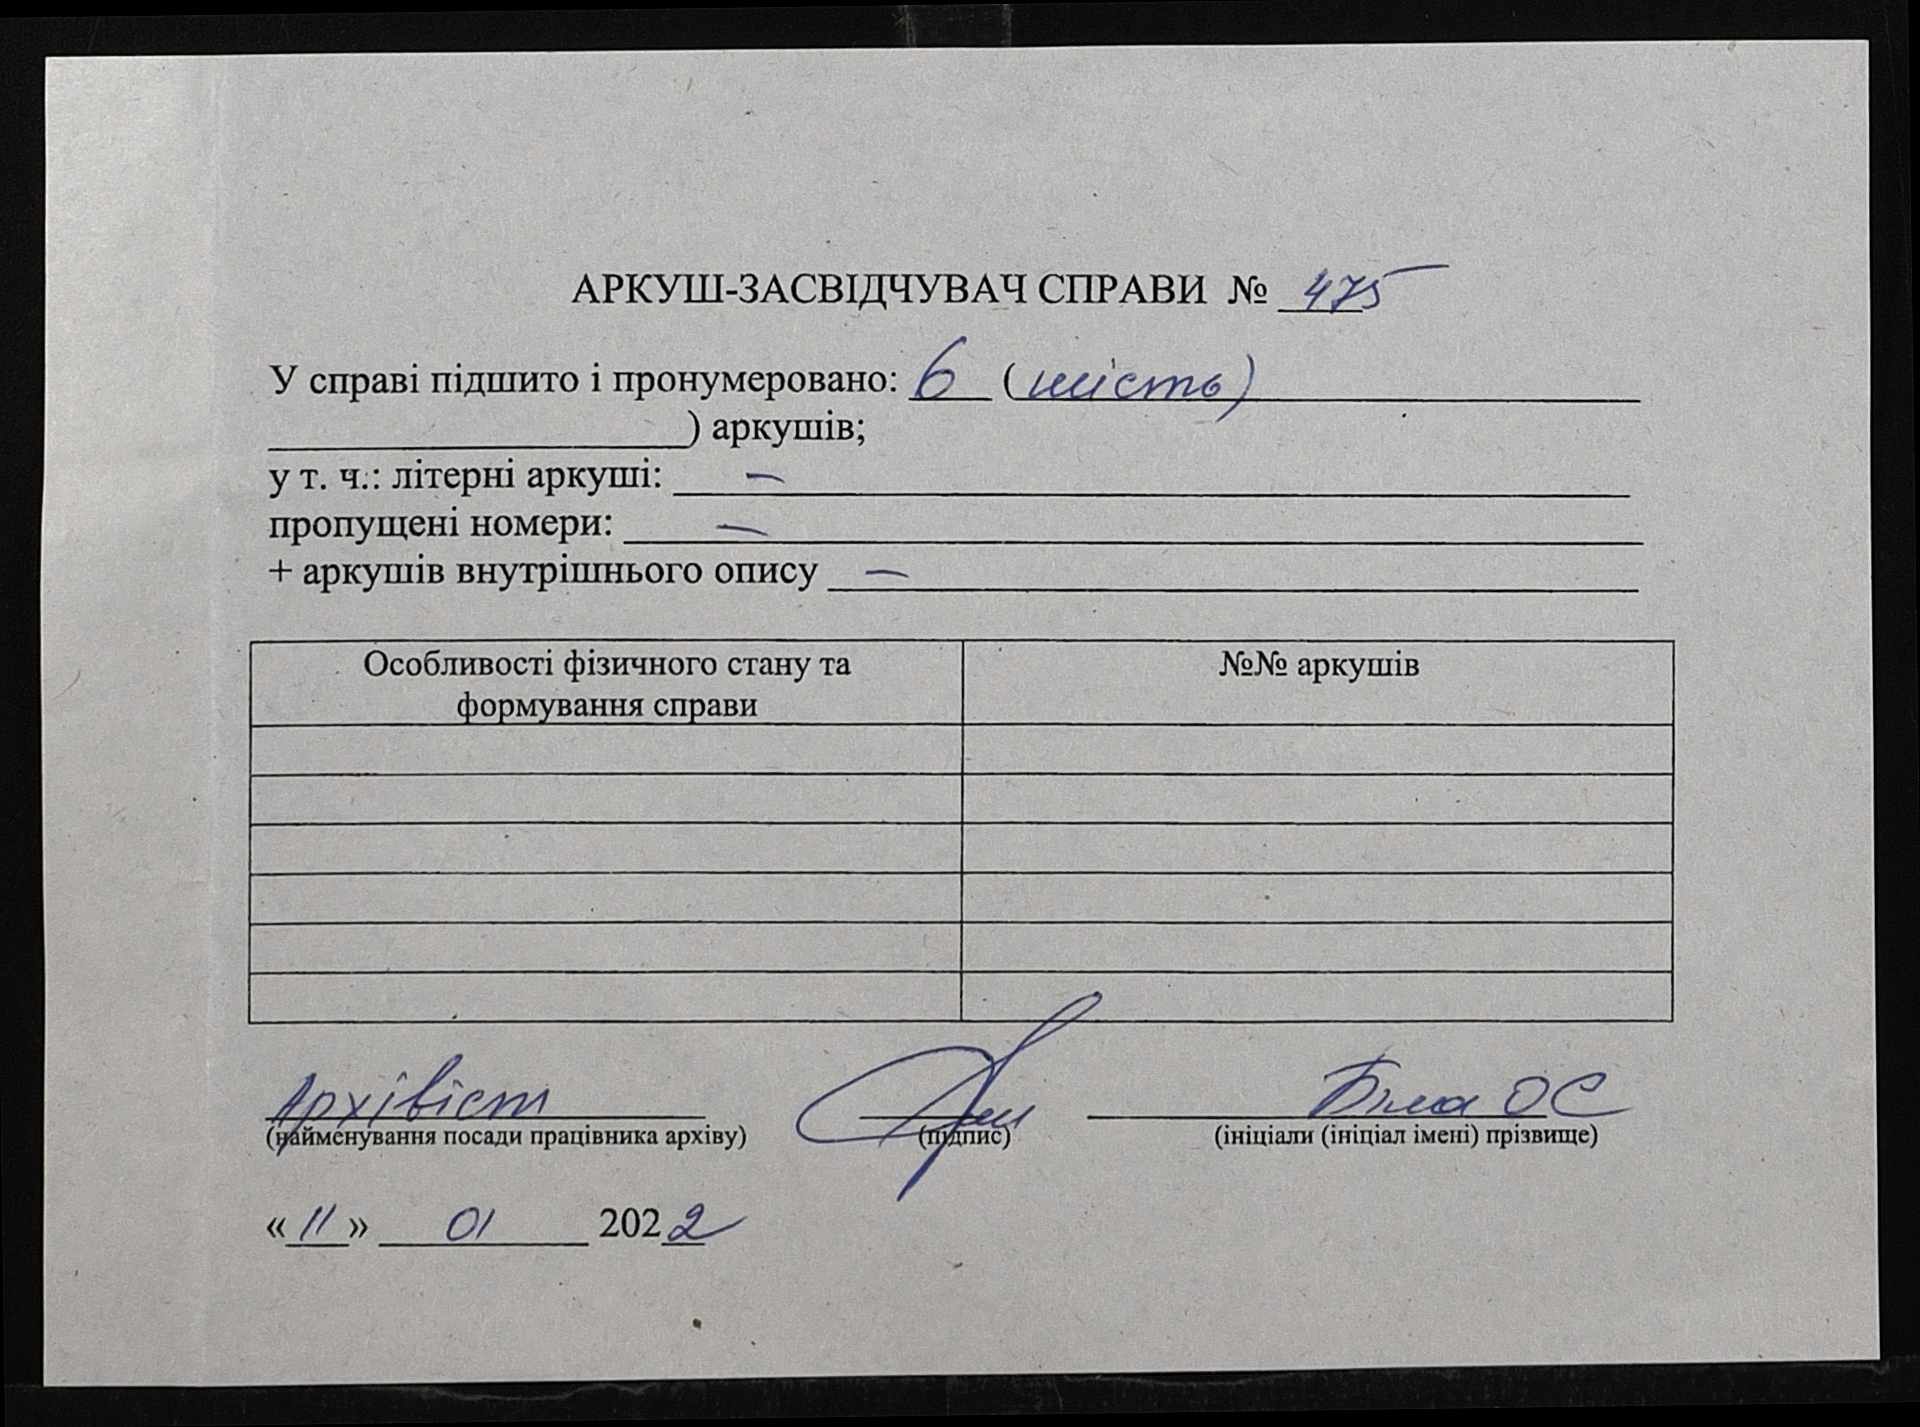 АРКУШ-ЗАСВІДЧУВАЧ СПРАВИ № 475
У справі підшито і пронумеровано: 6 (шість)
) аркушів;
у т. ч.: літерні аркуші: –
пропущені номери: –
+ аркушів внутрішнього опису –
Особливості фізичного стану та
формування справи
№№ аркушів
Архівіст Біла ОС
(найменування посади працівника архіву) (підпис) (ініціали (ініціал імені) прізвище)
«11» 01 2022